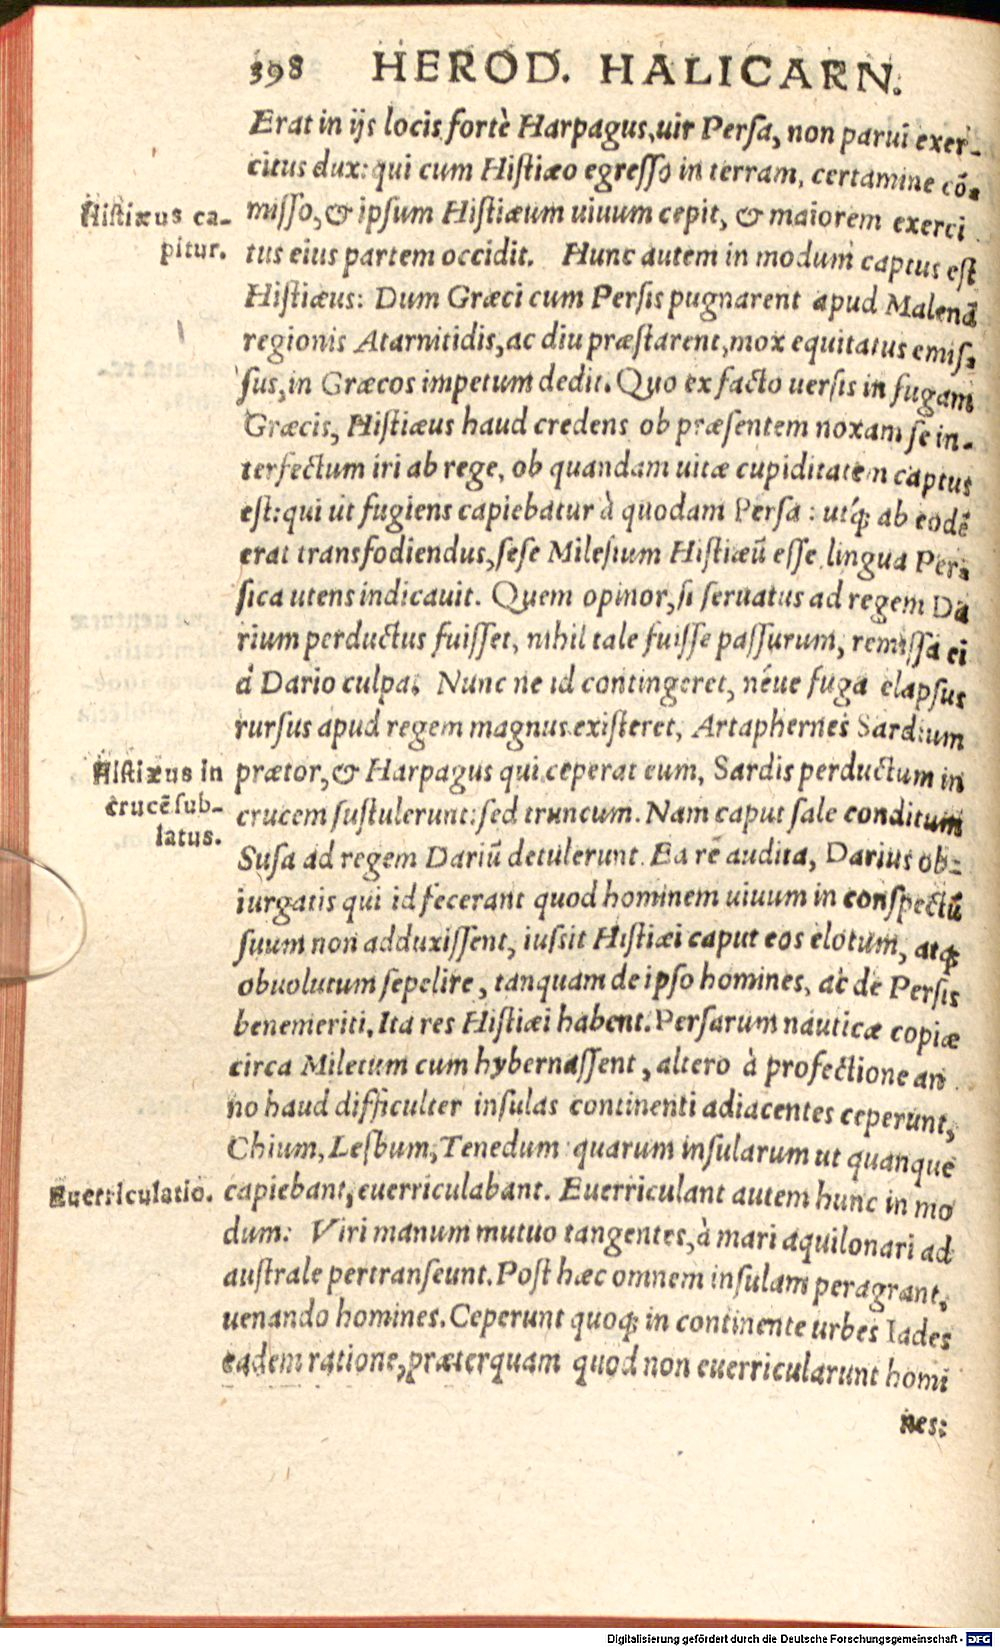 398 HEROD. HALICARN.
Erat in ijs locis fortè Harpagus, uir Persa, non parui exer-
citus dux: qui cum Histiæo egresso in terram, certamine cō-
Histiæus ca-
pitur.
misso, & ipsum Histiæum uiuum cepit, & maiorem exerci
tus eius partem occidit. Hunc autem in modum captus est
Histiæus: Dum Græci cum Persis pugnarent apud Malenā
regionis Atarnitidis, ac diu præstarent, mox equitatus emis-
sus, in Græcos impetum dedit. Quo ex facto uersis in fugam
Græcis, Histiæus haud credens ob præsentem noxam se in-
terfectum iri ab rege, ob quandam uitæ cupiditatem captus
est: qui ut fugiens capiebatur à quodam Persa: utq́; ab eodē
erat transfodiendus, sese Milesium Histiæū esse lingua Per-
sica utens indicauit. Quem opinor, si seruatus ad regem Da
rium perductus fuisset, nihil tale fuisse passurum, remissa ei
à Dario culpa. Nunc ne id contingeret, néue fuga elapsus
rursus apud regem magnus existeret, Artaphernes Sardium
Histiæus in
crucē sub-
latus.
prætor, & Harpagus qui ceperat eum, Sardis perductum in
crucem sustulerunt: sed truncum. Nam caput sale conditum
Susa ad regem Dariū detulerunt. Ea rē audita, Darius ob-
iurgatis qui id fecerant quod hominem uiuum in conspectū
suum non adduxissent, iussit Histiæi caput eos elotum, atq;
obuolutum sepelire, tanquam de ipso homines, ac de Persis
benemeriti. Ita res Histiæi habent. Persarum nauticæ copiæ
circa Miletum cum hybernassent, altero à profectione an
no haud difficulter insulas continenti adiacentes ceperunt,
Chium, Lesbum, Tenedum: quarum insularum ut quanque
Euerriculatio.
capiebant, euerriculabant. Euerriculant autem hunc in mo
dum: Viri manum mutuo tangentes, à mari aquilonari ad
australe pertranseunt. Post hæc omnem insulam peragrant,
uenando homines. Ceperunt quoq; in continente urbes Iades
eadem ratione, præterquam quod non euerricularunt homi
nes:
Digitalisierung gefördert durch die Deutsche Forschungsgemeinschaft - DFG